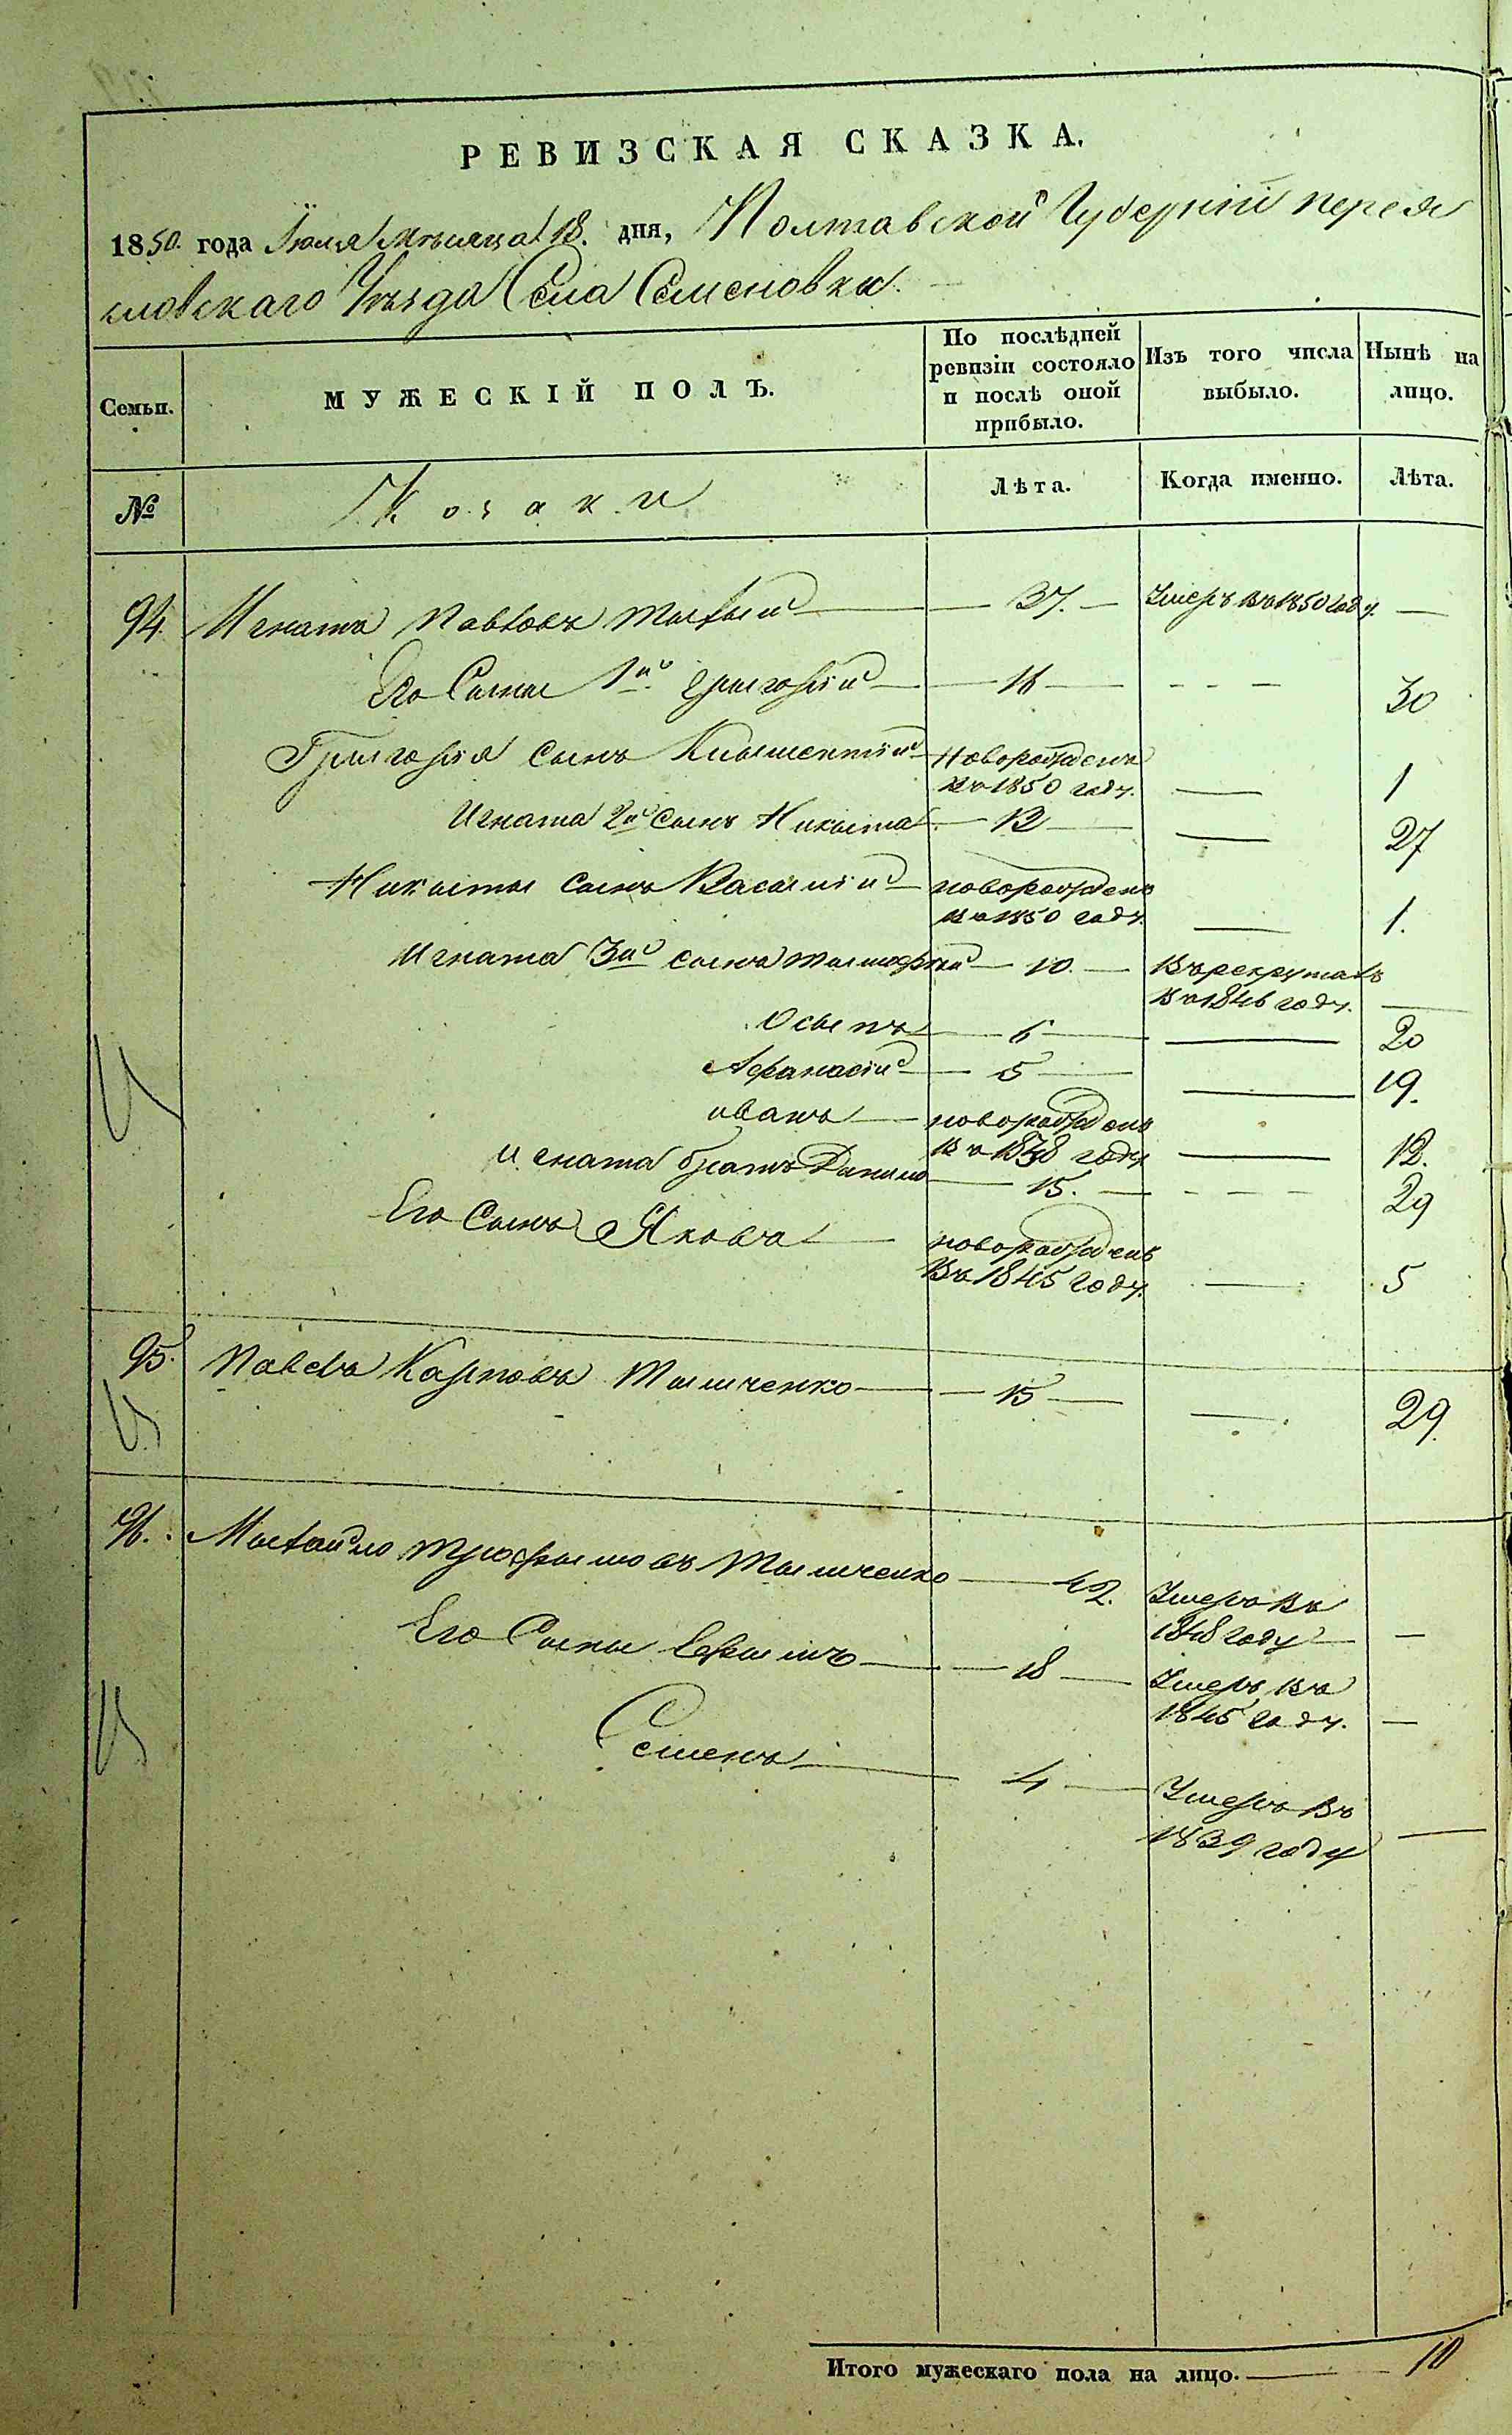 РЕВИЗСКАЯ СКАЗКА.
1850. года Іюля Мѣсяца 18. дня, Полтавской Губерніи перея
словскаго Уѣзда Села Семеновки.
Семьи.
МУЖЕСКІЙ ПОЛЪ.
По послѣдней ревизіи состояло и послѣ оной прибыло.
Изъ того числа выбыло.
Нынѣ на лицо.
№
Козаки
Лѣта.
Когда именно.
Лѣта.
94. Игнатъ Павловъ — 37. — Умеръ въ 1850 году. —
Его Сыны 1й Григорій — 16 — - - - 30
Григорія сынъ Климентій — Новорожденъ
въ 1850 году. — 1
Игната 2й сынъ Никыта — 12 — — 27
Никыты сынъ Васылій — новорожденъ
въ 1850 году. — 1.
Игната 3й сынъ Тымофей — 10. — Въ рекрутахъ
въ 1846 году. —
Осыпъ — 6 — — 20
Афанасій — 5 — — 19.
иванъ — новорожденъ
въ 1838 году — 12.
игната братъ Данило — 15. — - - - 29
Его Сынъ Яковъ — новорожденъ
Въ 1845 году. — 5
95. Павелъ Карповъ Тымченко — 15 — — 29.
96. Мыхайло Трофымовъ Тымченко — 42. Умеръ въ
1848 году — —
Его Сыны Ефымъ — 18 — Умеръ въ
1845 году. —
Семенъ — 4 — Умеръ въ
1839 году —
Итого мужескаго пола на лицо. — 10